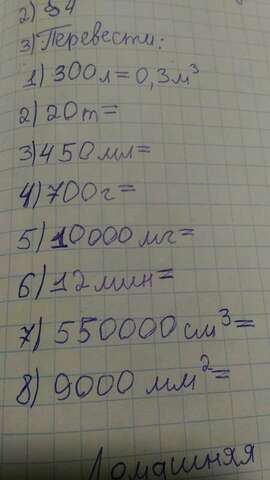 2) §4
3) Перевести:
1) 300л=0,3м³
2) 20т=
3) 450мл=
4) 700г=
5) 10000мг=
6) 12мин=
7) 550000см³=
8) 9000мм²=
Домашняя